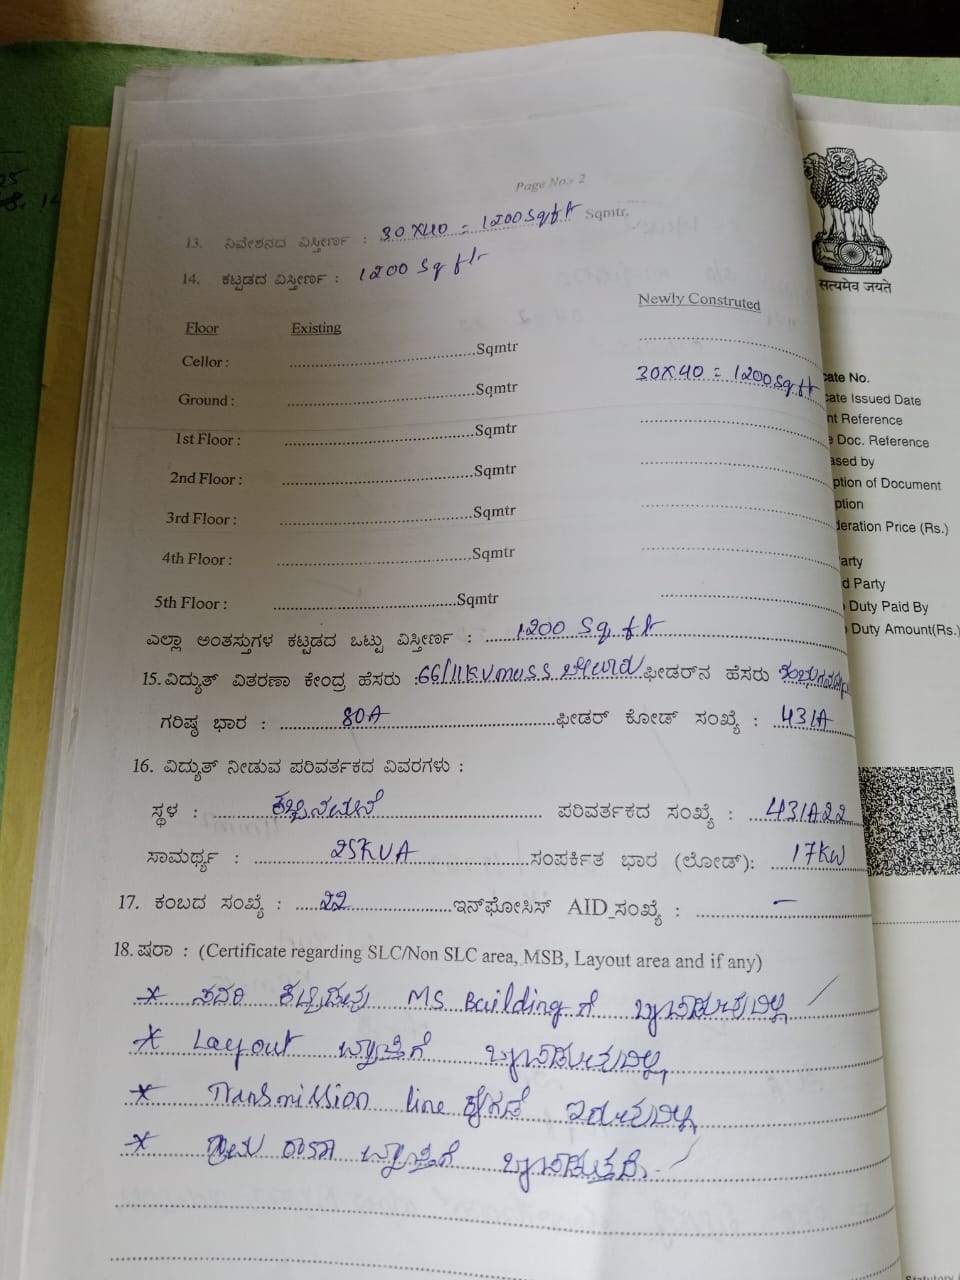 Page No:- 2
13. ನಿವೇಶನದ ವಿಸ್ತೀರ್ಣ : 30X40 = 1200 Sq ft Sqmtr.
14. ಕಟ್ಟಡದ ವಿಸ್ತೀರ್ಣ : 1200 Sq ft
Floor Existing Newly Construted
Cellor : Sqmtr
Ground : Sqmtr 30X40 = 1200 Sq ft
1st Floor : Sqmtr
2nd Floor : Sqmtr
3rd Floor : Sqmtr
4th Floor : Sqmtr
5th Floor : Sqmtr
ಎಲ್ಲಾ ಅಂತಸ್ತುಗಳ ಕಟ್ಟಡದ ಒಟ್ಟು ವಿಸ್ತೀರ್ಣ : 1200 Sq ft
15. ವಿದ್ಯುತ್ ವಿತರಣಾ ಕೇಂದ್ರ ಹೆಸರು : 66/11KV muss ಫೀಡರ್‌ನ ಹೆಸರು
ಗರಿಷ್ಠ ಭಾರ : 80A ಫೀಡರ್ ಕೋಡ್ ಸಂಖ್ಯೆ : 431A
16. ವಿದ್ಯುತ್ ನೀಡುವ ಪರಿವರ್ತಕದ ವಿವರಗಳು :
ಸ್ಥಳ : ಪರಿವರ್ತಕದ ಸಂಖ್ಯೆ : 431A22
ಸಾಮರ್ಥ್ಯ : 25KVA ಸಂಪರ್ಕಿತ ಭಾರ (ಲೋಡ್): 17KW
17. ಕಂಬದ ಸಂಖ್ಯೆ : 22 ಇನ್‌ಫೋಸಿಸ್ AID_ಸಂಖ್ಯೆ : –
18. ಷರಾ : (Certificate regarding SLC/Non SLC area, MSB, Layout area and if any)
* ಸದರಿ ಕಟ್ಟಡವು MS Building ಗೆ ಒಳಪಡುವುದಿಲ್ಲ
* Layout ವ್ಯಾಪ್ತಿಗೆ ಒಳಪಡುವುದಿಲ್ಲ
* Transmission line ಕೆಳಗಡೆ ಇರುವುದಿಲ್ಲ
* ಗ್ರಾಮ ಠಾಣಾ ವ್ಯಾಪ್ತಿಗೆ ಒಳಪಡುತ್ತದೆ.
सत्यमेव जयते
cate No.
cate Issued Date
nt Reference
e Doc. Reference
ased by
ption of Document
ption
deration Price (Rs.)
arty
d Party
Duty Paid By
Duty Amount(Rs.)